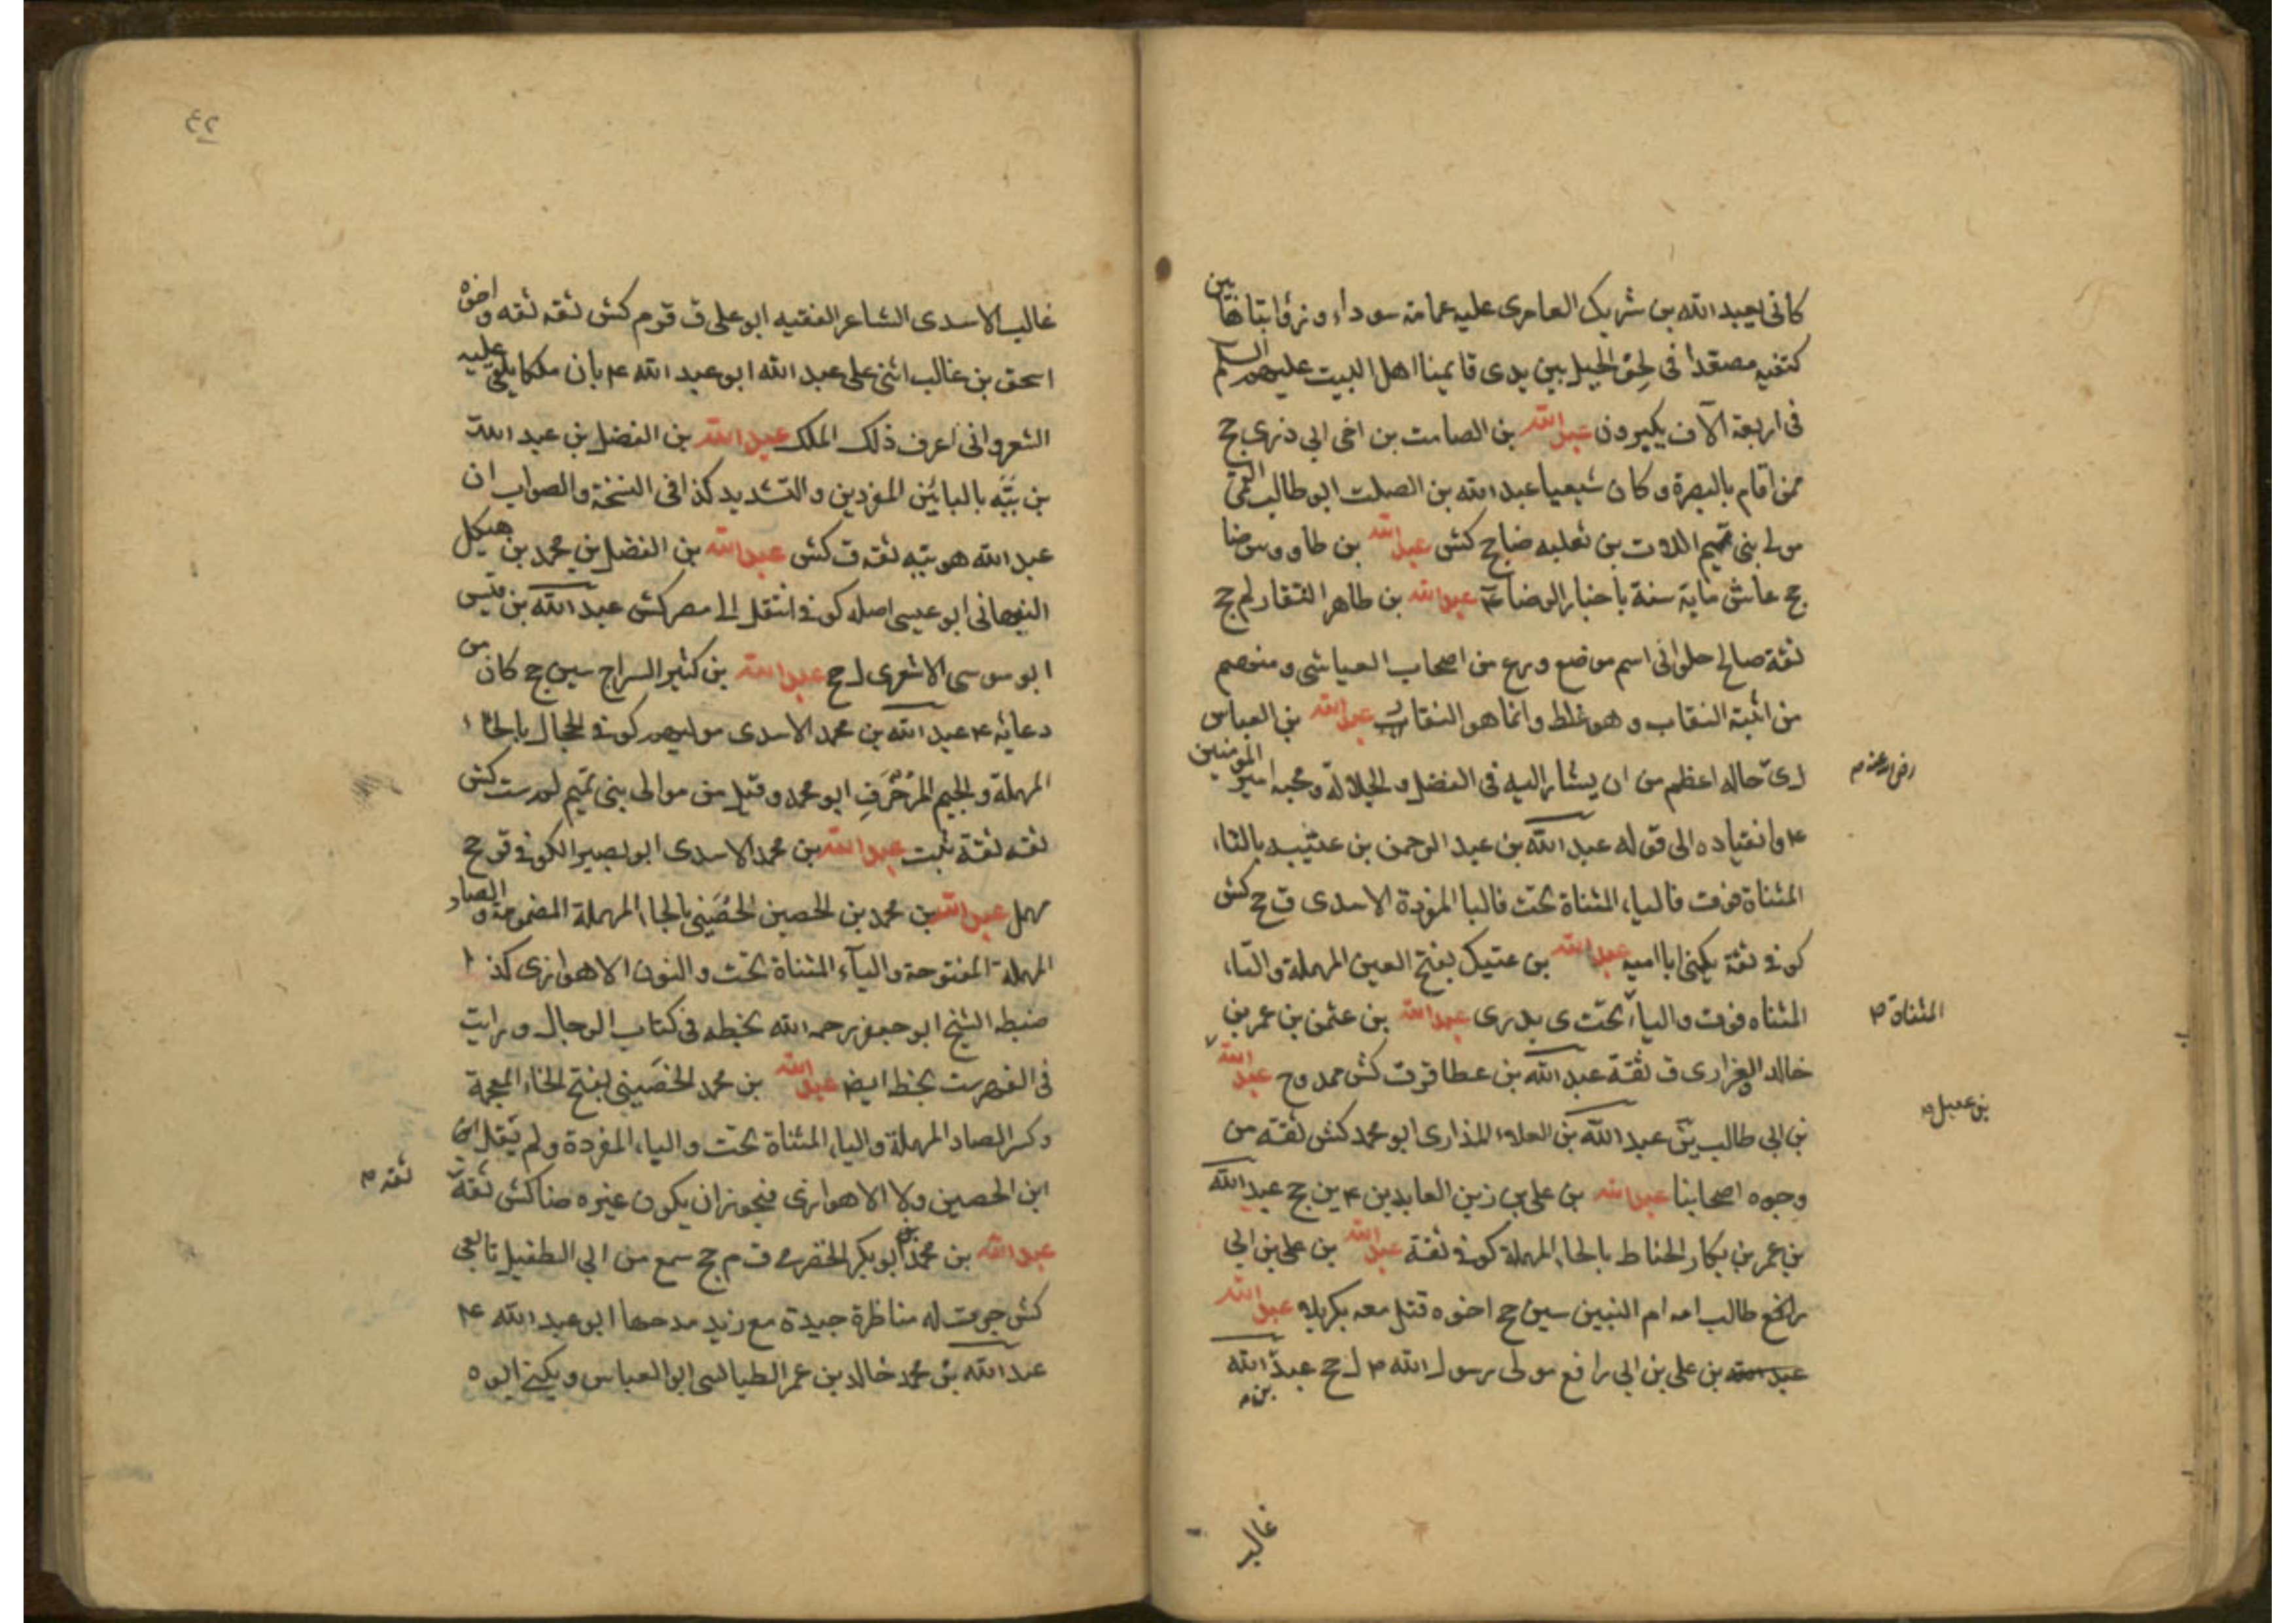 كاني بعبد الله بن شريك العامري عليه عمامة سوداء وذؤابتاها بين
كتفيه مصعدا في لحف الجبل بين يدي قايمنا اهل البيت عليهم السلم
في اربعة آلاف يكبرون عبد الله بن الصامت بن اخي ابي ذر ى جح
ممن اقام بالبصرة وكان شيعيا عبد الله بن الصلت ابو طالب القمي
مولى بني تيم اللات بن ثعلبه ضا جح كش عبد الله بن طاووس ضا
جح عاش ماية سنة باخبار الرضا ع عبد الله بن طاهر النقار لم جح
ثقة صالح حلواني اسم موضع ورع من اصحاب العياشي ومنهم
من اثبته النقاب وهو غلط وانما هو النقار عبد الله بن العباس
رضي الله عنه
ل ى حاله اعظم من ان يشار اليه في الفضل والجلالة ومحبه امير المومنين
ع وانقياده الى قوله عبد الله بن عبد الرحمن بن عتيبه بالتاء
المثناة فوق فالياء المثناة تحت فالبا المفردة الاسدي ق جح كش
كوفي ثقة يكنى ابا اميه عبد الله بن عتيك بفتح العين المهملة والتاء
المثناه فوق والياء تحت ى بدرى عبد الله بن عثمن بن عمر بن
المثناة
خالد الفزاري ق ثقة عبد الله بن عطا قر ق كش ممدوح عبد الله
بن عقيل
بن ابي طالب ين عبد الله بن العلاء المذاري ابو محمد كش ثقة من
وجوه اصحابنا عبد الله بن علي بن زين العابدين ع ين جح عبد الله
بن عمر بن بكار الحناط بالحاء المهملة كوفي ثقة عبد الله بن علي بن ابي
طالب امه ام البنين سين جح اخوه قتل معه بكربلا عبد الله
بن علي بن ابي رافع مولى رسول الله ل جح عبد الله
بن
غالب
٤٢
غالب الاسدي الشاعر الفقيه ابو علي ق قر م كش ثقه ثقه واخوه
اسحق بن غالب اثنى على عبد الله ابو عبد الله ع بان ملكا يلقي عليه
الشعر واني اعرف ذلك الملك عبد الله بن الفضل بن عبد الله
بن ببه بالبائين المفردين والتشديد كذا في النسخة والصواب ان
عبد الله هو ببه ثقه ق كش عبد الله بن الفضل بن محمد بن هيكل
النبهاني ابو عيسى اصله كوفي انتقل الى مصر كش عبد الله بن قيس
ابو موسى الاشعري ل جح عبد الله بن كثير السراج سين جح كان من
دعائه ع عبد الله بن محمد الاسدي موليهم كوفي الحجال بالحاء
المهملة والجيم المزخرف ابو محمد وقيل من موالي بني تميم لم ست كش
ثقه ثقة ثبت عبد الله بن محمد الاسدي ابو بصير الكوفي قر جح
مهمل عبد الله بن محمد بن الحصين الحصيني بالحاء المهملة المضمومة والصاد
المهملة المفتوحة والياء المثناة تحت والنون الاهوازي كذا
ضبطه الشيخ ابو جعفر رحمه الله بخطه في كتاب الرجال ورايت
في الفهرست بخطه ايضا عبد الله بن محمد الخصيبي بفتح الخاء المعجمة
وكسر الصاد المهملة والياء المثناة تحت والباء المفردة ولم يقل ابن
ابن الحصين ولا الاهوازي فيجوز ان يكون غيره ضا كش ثقة
ثقه
عبد الله بن محمد ابو بكر الحضرمي ق م جح سمع من ابي الطفيل تابعي
كش جرت له مناظرة جيدة مع زيد مدحها ابو عبد الله ع
عبد الله بن محمد خالد بن عمر الطيالسي ابو العباس ويكنى ابوه